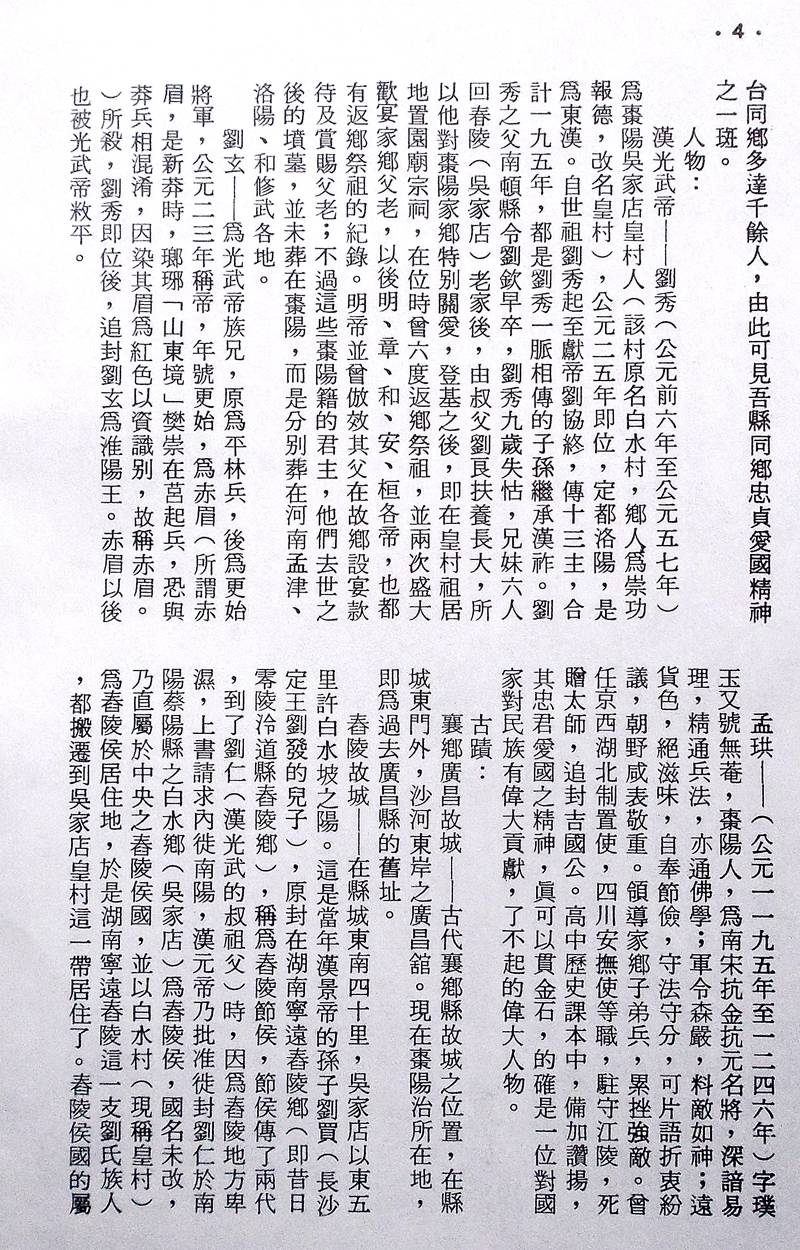 ·4·
台同鄉多達千餘人，由此可見吾縣同鄉忠貞愛國精神
之一斑。
人物：
漢光武帝——劉秀（公元前六年至公元五七年）
爲棗陽吳家店皇村人（該村原名白水村，鄉人爲崇功
報德，改名皇村），公元二五年即位，定都洛陽，是
爲東漢。自世祖劉秀起至獻帝劉協終，傳十三主，合
計一九五年，都是劉秀一脈相傳的子孫繼承漢祚。劉
秀之父南頓縣令劉欽早卒，劉秀九歲失怙，兄妹六人
回春陵（吳家店）老家後，由叔父劉良扶養長大，所
以他對棗陽家鄉特別關愛，登基之後，即在皇村祖居
地置園廟宗祠，在位時曾六度返鄉祭祖，並兩次盛大
歡宴家鄉父老，以後明、章、和、安、桓各帝，也都
有返鄉祭祖的紀錄。明帝並曾倣效其父在故鄉設宴款
待及賞賜父老；不過這些棗陽籍的君主，他們去世之
後的墳墓，並未葬在棗陽，而是分別葬在河南孟津、
洛陽、和修武各地。
劉玄——爲光武帝族兄，原爲平林兵，後爲更始
將軍，公元二三年稱帝，年號更始，爲赤眉（所謂赤
眉，是新莽時，瑯琊「山東境」樊崇在莒起兵，恐與
莽兵相混淆，因染其眉爲紅色以資識別，故稱赤眉。
）所殺，劉秀即位後，追封劉玄爲淮陽王。赤眉以後
也被光武帝敉平。
孟珙——（公元一一九五年至一二四六年）字璞
玉又號無菴，棗陽人，爲南宋抗金抗元名將，深諳易
理，精通兵法，亦通佛學；軍令森嚴，料敵如神；遠
貨色，絕滋味，自奉節儉，守法守分，可片語折衷紛
議，朝野咸表敬重。領導家鄉子弟兵，累挫強敵。曾
任京西湖北制置使，四川安撫使等職，駐守江陵，死
贈太師，追封吉國公。高中歷史課本中，備加讚揚，
其忠君愛國之精神，眞可以貫金石，的確是一位對國
家對民族有偉大貢獻，了不起的偉大人物。
古蹟：
襄鄉廣昌故城——古代襄鄉縣故城之位置，在縣
城東門外，沙河東岸之廣昌舘。現在棗陽治所在地，
即爲過去廣昌縣的舊址。
舂陵故城——在縣城東南四十里，吳家店以東五
里許白水坡之陽。這是當年漢景帝的孫子劉買（長沙
定王劉發的兒子），原封在湖南寧遠舂陵鄉（即昔日
零陵泠道縣舂陵鄉），稱爲舂陵節侯，節侯傳了兩代
，到了劉仁（漢光武的叔祖父）時，因爲舂陵地方卑
濕，上書請求內徙南陽，漢元帝乃批准徙封劉仁於南
陽蔡陽縣之白水鄉（吳家店）爲舂陵侯，國名未改，
乃直屬於中央之舂陵侯國，並以白水村（現稱皇村）
爲舂陵侯居住地，於是湖南寧遠舂陵這一支劉氏族人
，都搬遷到吳家店皇村這一帶居住了。舂陵侯國的屬